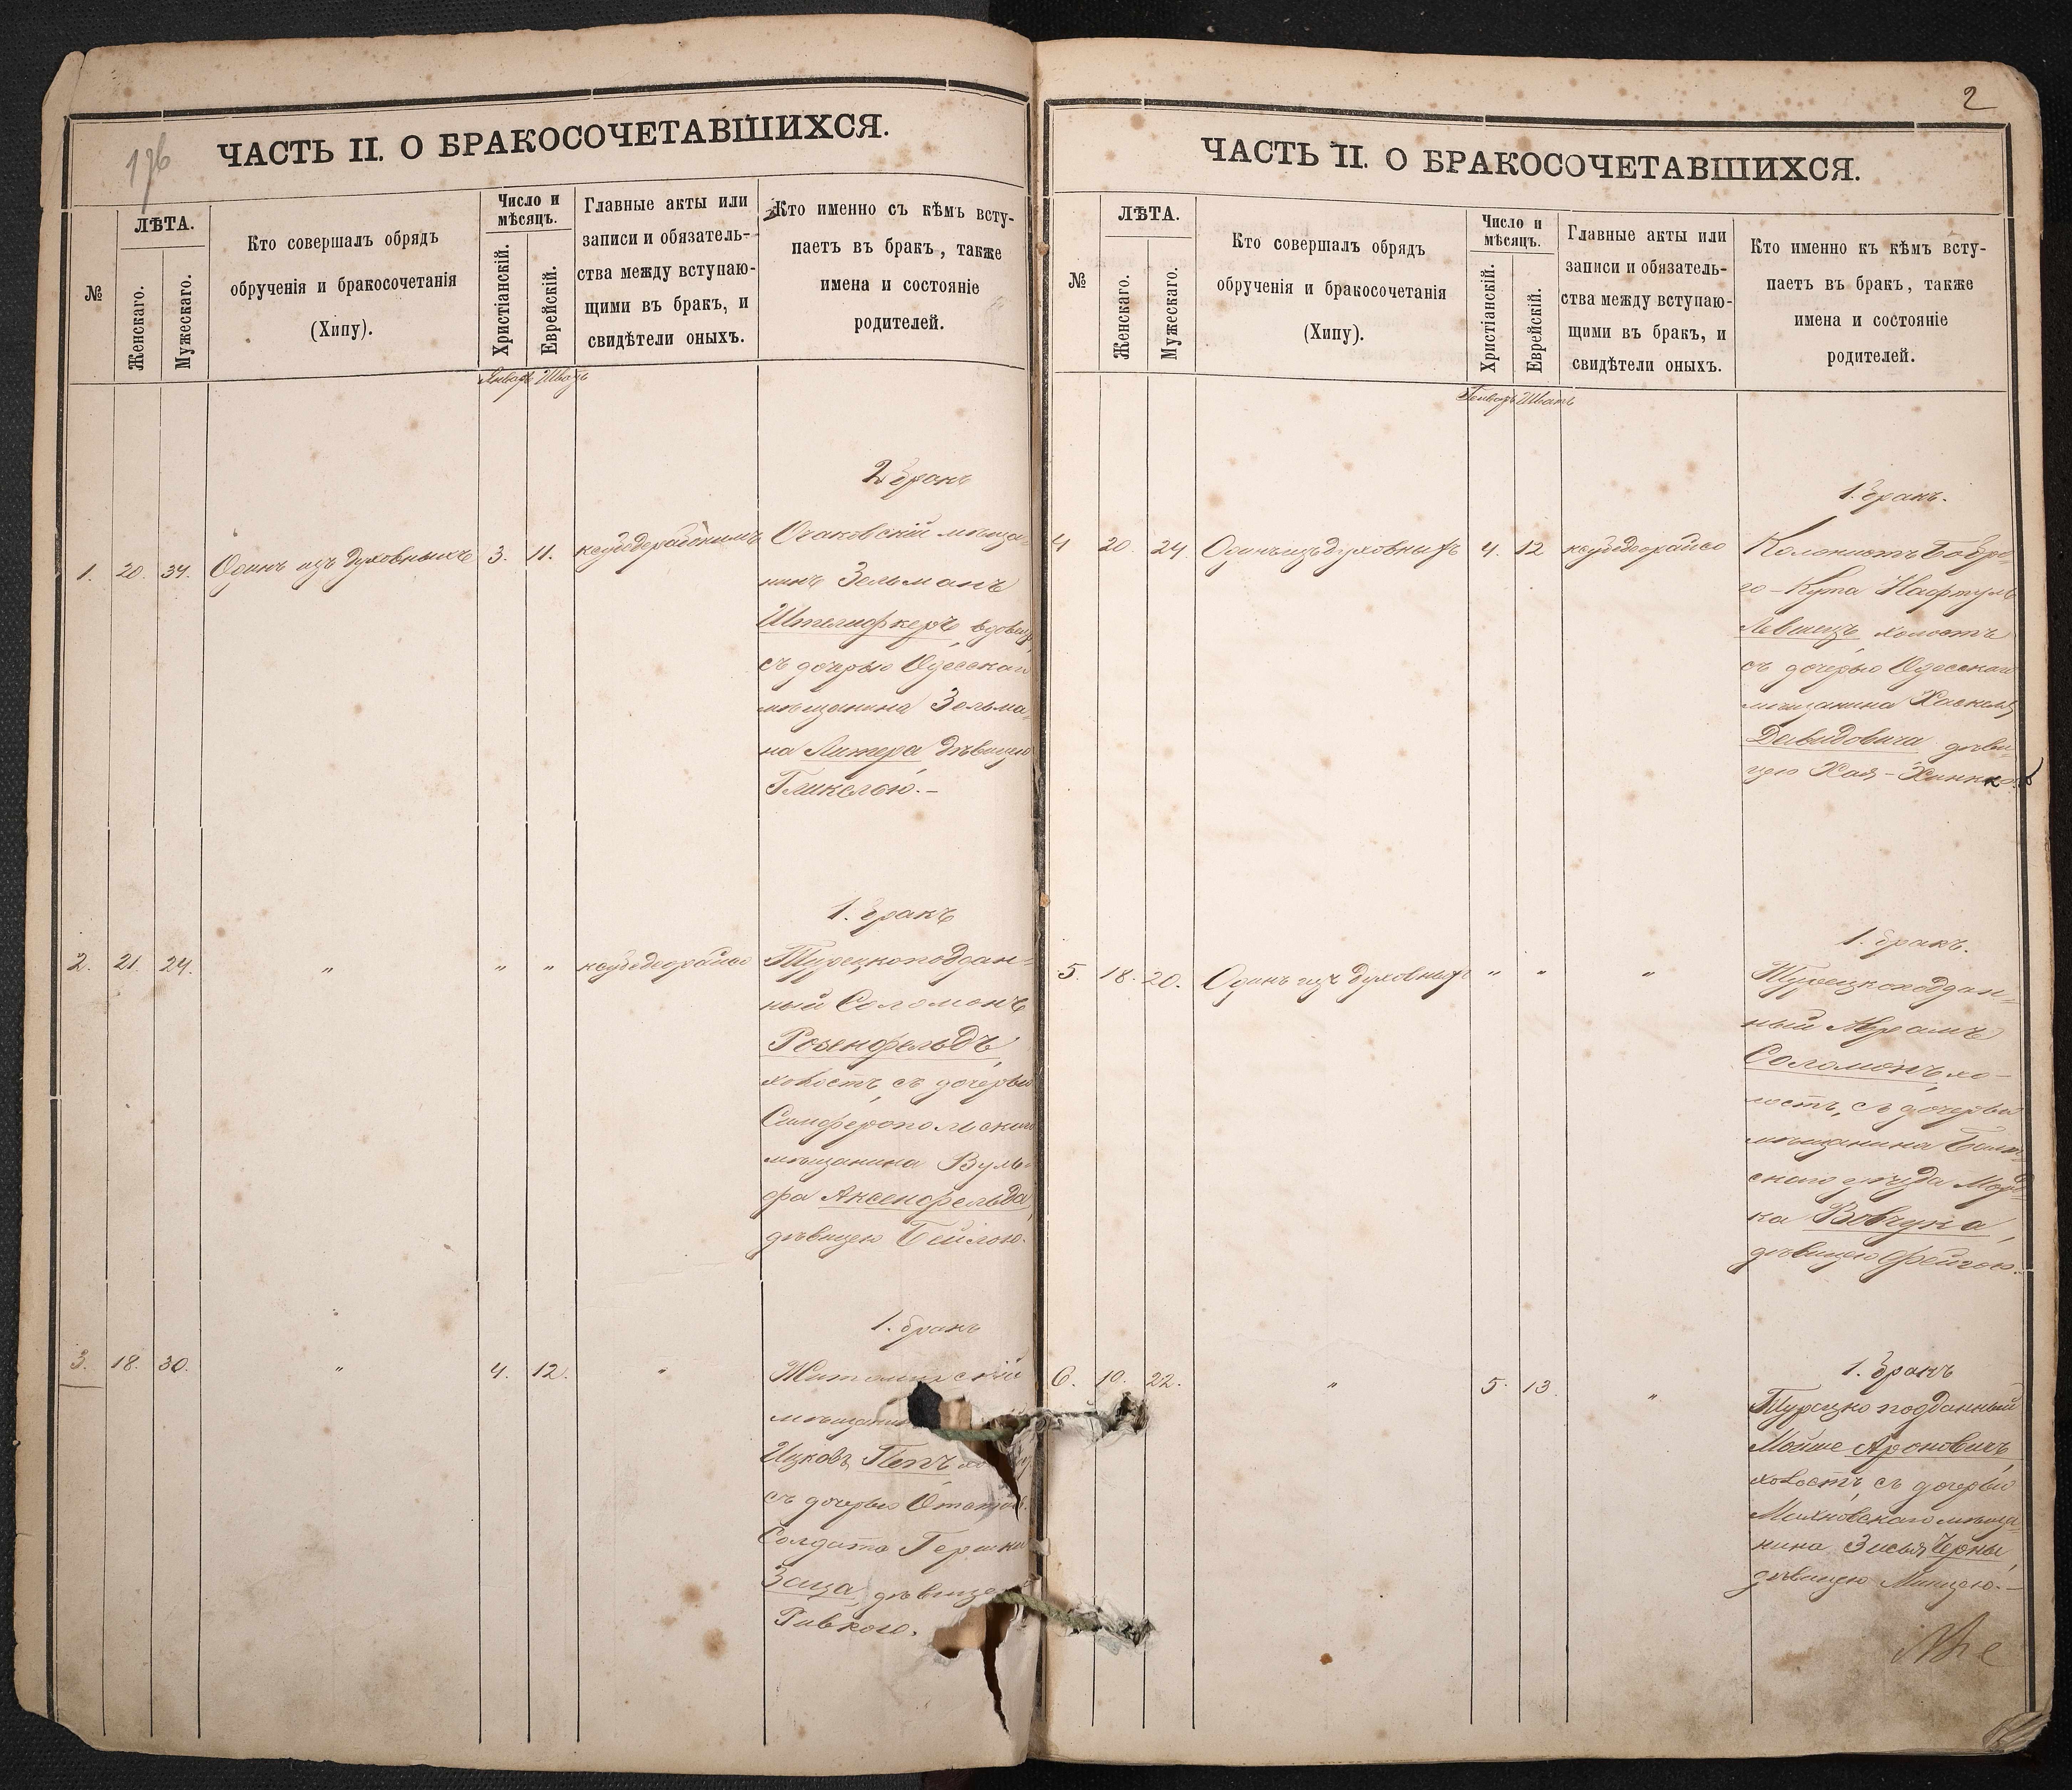 176
ЧАСТЬ II. О БРАКОСОЧЕТАВШИХСЯ.
№
ЛѢТА.
Женскаго.
Мужескаго.
Кто совершалъ обрядъ
обрученія и бракосочетанія
(Хипу).
Число и
мѣсяцъ.
Христіанскій.
Еврейскій.
Главные акты или
записи и обязатель-
ства между вступаю-
щими въ бракъ, и
свидѣтели оныхъ.
Кто именно съ кѣмъ всту-
паетъ въ бракъ, также
имена и состояніе
родителей.
Январь Шватъ
2 бракъ
1. 20. 34. Одинъ изъ духовныхъ 3. 11.
Очаковскій мѣща-
нинъ Зельманъ
Штелифкеръ вдовецъ,
съ дочерью Одесскаго
мѣщанина Зельма-
на Литера дѣвицею
Гликелью.-
1. бракъ
2. 21. 24. " " "
Турецкоподдан-
ный Соломонъ
Розенфельдъ,
холостъ, съ дочерью
Симферопольскаго
мѣщанина Вуль-
фа Аксенфельда,
дѣвицею Бейлою.
1. бракъ
3. 18. 30. " 4. 12. "
Житомирскій
мѣщанинъ
Ицковъ Пепъ
съ дочерью
Солдата Гершки
Заица, дѣвицею
Ривкою.
2
ЧАСТЬ II. О БРАКОСОЧЕТАВШИХСЯ.
№
ЛѢТА.
Женскаго.
Мужескаго.
Кто совершалъ обрядъ
обрученія и бракосочетанія
(Хипу).
Число и
мѣсяцъ.
Христіанскій.
Еврейскій.
Главные акты или
записи и обязатель-
ства между вступаю-
щими въ бракъ, и
свидѣтели оныхъ.
Кто именно къ кѣмъ всту-
паетъ въ бракъ, также
имена и состояніе
родителей.
Генварь Шватъ
1. бракъ.
4 20. 24. Одинъ изъ духовныхъ 4. 12
Колонистъ Бобро-
го-Кута Нафтуль
Левицъ холостъ
съ дочерью Одесскаго
мѣщанина Хаскеля
Давидовича дѣви-
цею Хая-
1. бракъ.
5. 18. 20. Одинъ изъ духовныхъ " " "
Турецкоподдан-
ный Абрамъ
Соломонъ, хо-
лостъ, съ дочерью
мѣщанина Балт-
скаго уѣзда Морд-
ка Вовчука,
дѣвицею Фейгою.
1. бракъ
6. 10. 22. " 5. 13. "
Турецко подданный
Мойше Ароновичъ,
холостъ, съ дочерью
Махновскаго мѣща-
нина Зися Черны,
дѣвицею Минцею.-